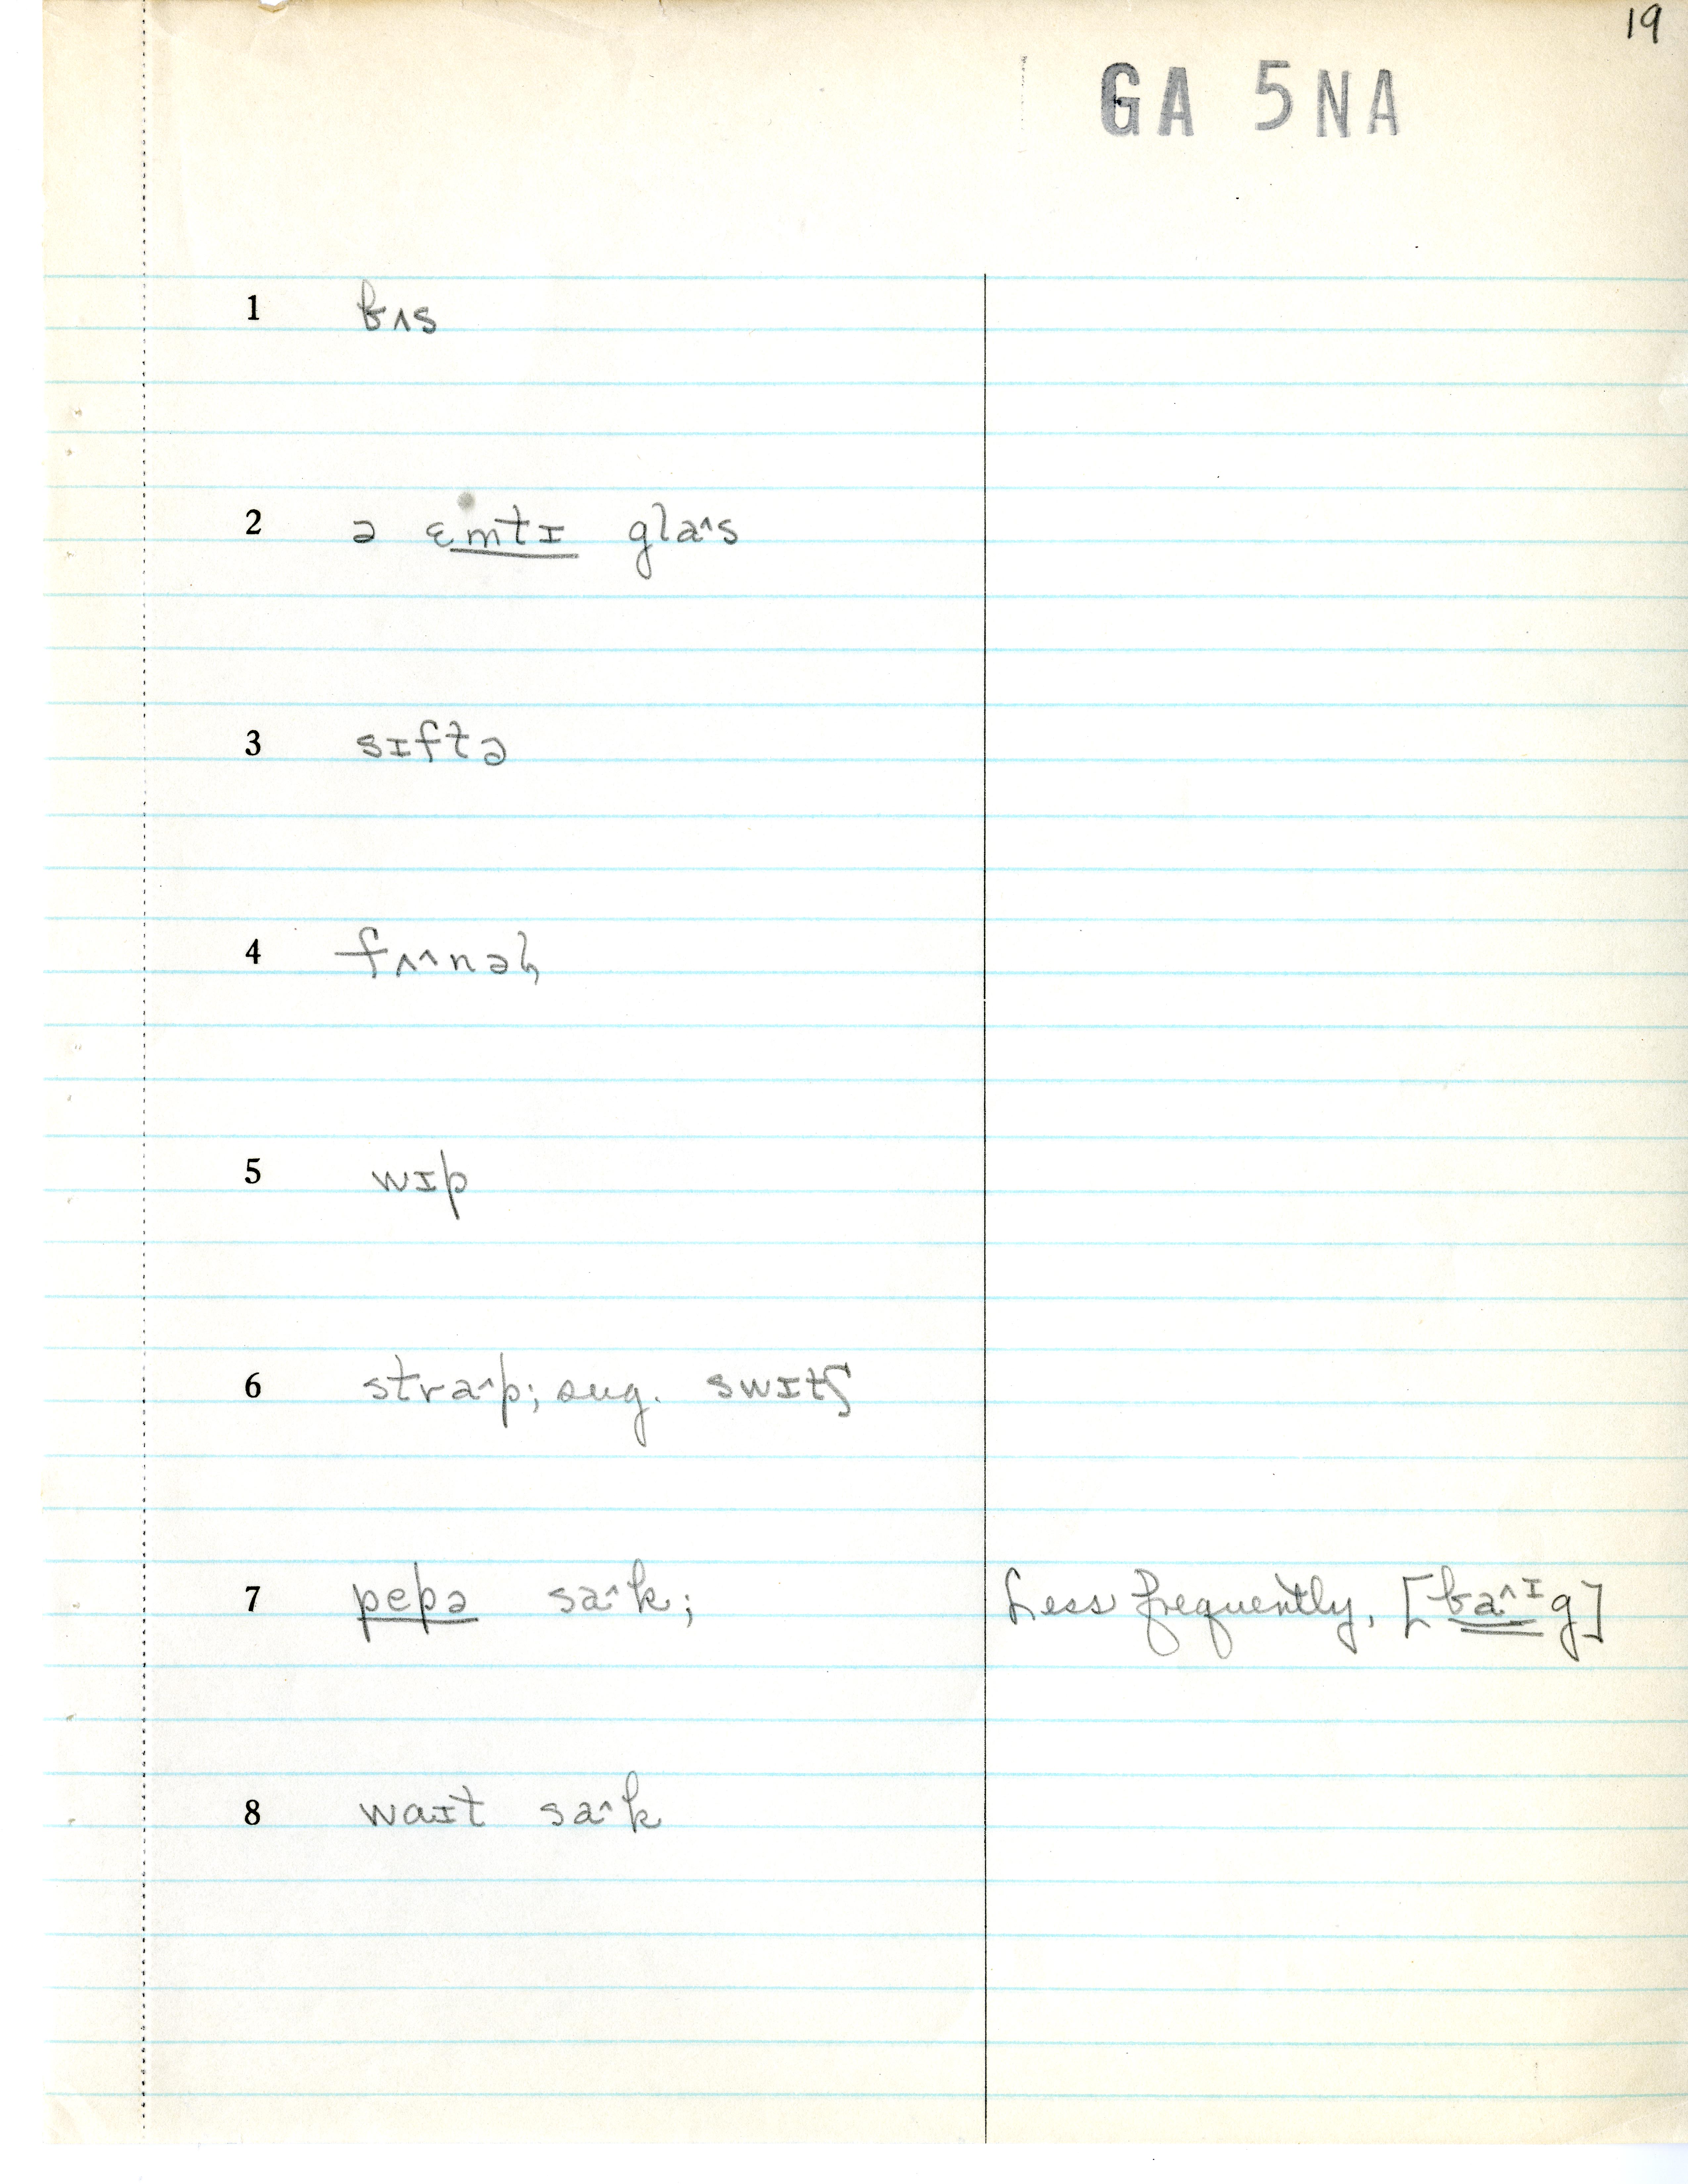 19
GA 5NA
1 bʌs
2 ə ɛmtɪ gla^s
3 sɪftə
4 fʌ^nəl̡
5 wɪp
6 stra^p; sug. swɪtʃ
7 pepə sa^k; Less frequently, [ba^ɪg]
8 waɪt sa^k